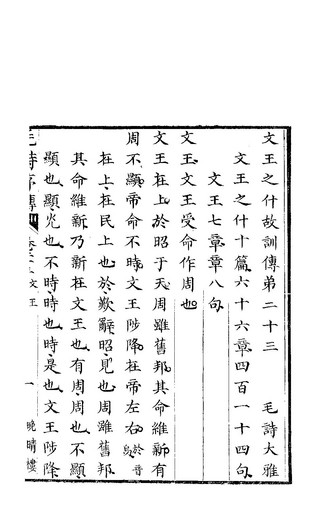 文王之什故訓傳第二十三　毛詩大雅
文王之什十篇六十六章四百一十四句
文王七章章八句
文王文王受命作周也
文王在上於昭于天周雖舊邦其命維新有
周不顯帝命不時文王陟降在帝左右
於音烏
在上在民上也於歎辭昭見也周雖舊邦
其命維新乃新在文王也有周周也不顯
顯也顯光也不時時也時是也文王陟降
文王
一
晚晴樓